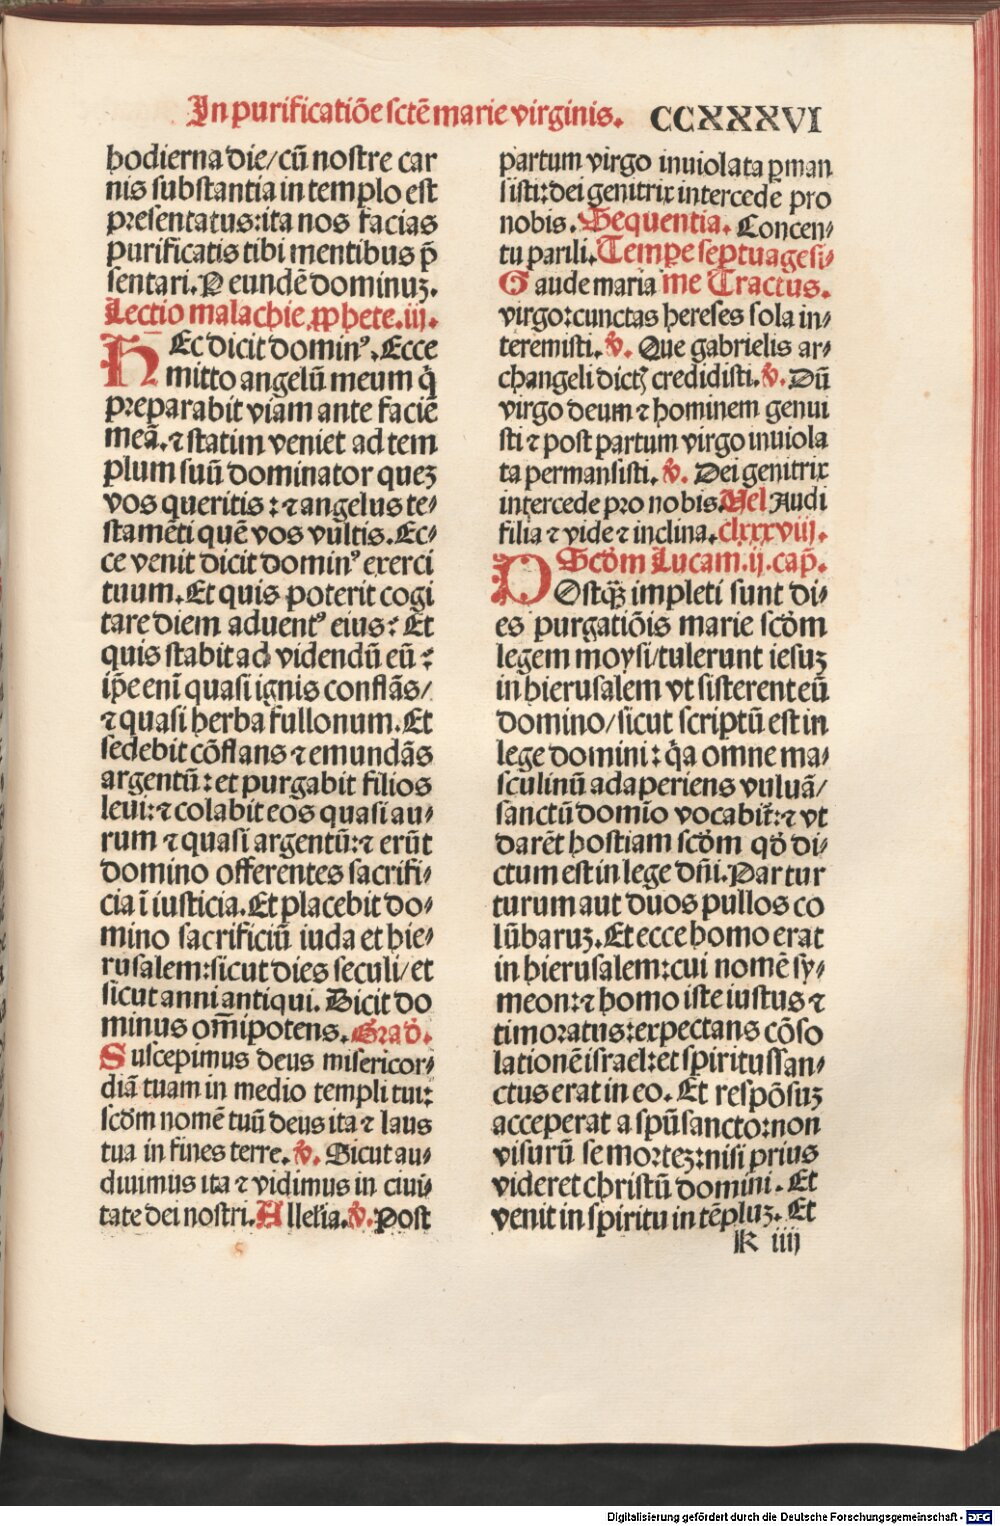 In purificatiōe sctē marie virginis. CCXXXVI
hodierna die/cū nostre car
nis substantia in templo est
presentatus:ita nos facias
purificatis tibi mentibus p̄
sentari. P eundē dominuꝫ.
Lectio malachie ꝓphete.iij.
HEc dicit dominꝰ. Ecce
mitto angelū meum q̇
preparabit viam ante faciē
meā. ⁊ statim veniet ad tem
plum suū dominator queꝫ
vos queritis: ⁊ angelus te⸗
stamēti quē vos vultis. Ec⸗
ce venit dicit dominꝰ exerci
tuum. Et quis poterit cogi
tare diem aduentꝰ eius? Et
quis stabit ad videndū eū?
ip̄e enī quasi ignis conflās/
⁊ quasi herba fullonum. Et
sedebit cōflans ⁊ emundās
argentū: et purgabit filios
leui: ⁊ colabit eos quasi au⸗
rum ⁊ quasi argentū: ⁊ erūt
domino offerentes sacrifi⸗
cia ī iusticia. Et placebit do⸗
mino sacrificiū iuda et hie⸗
rusalem:sicut dies seculi/et
sicut anni antiqui. Dicit do
minus om̄ipotens. Grad̓.
Suscepimus deus misericor⸗
diā tuam in medio templi tui:
scd̓m nomē tuū deus ita ⁊ laus
tua in fines terre. v̓. Sicut au⸗
diuimus ita ⁊ vidimus in ciui⸗
tate dei nostri. Allelia. v̓. Post
partum virgo inuiolata ꝑman
sisti:dei genitrix intercede pro
nobis. Sequentia. Concen⸗
tu parili. Tempe septuagesi⸗
Gaude maria me Tractus.
virgo:cunctas hereses sola in⸗
teremisti. v̓. Que gabrielis ar⸗
changeli dictꝭ credidisti. v̓. Dū
virgo deum ⁊ hominem genui
sti ⁊ post partum virgo inuiola
ta permansisti. v̓. Dei genitrix
intercede pro nobis. Vel Audi
filia ⁊ vide ⁊ inclina. clxxxviij.
Scd̓m Lucam.ij.cap̄.
POstq̄ꝫ impleti sunt di⸗
es purgatiōis marie scd̓m
legem moysi/tulerunt iesuꝫ
in hierusalem vt sisterent eū
domino/sicut scriptū est in
lege domini: q̇a omne ma⸗
sculinū adaperiens vuluā/
sanctū domīo vocabit̄: ⁊ vt
darēt hostiam scd̓m qd̓ di⸗
ctum est in lege dn̄i. Par tur
turum aut duos pullos co
lūbaruꝫ. Et ecce homo erat
in hierusalem:cui nomē sy⸗
meon: ⁊ homo iste iustus ⁊
timoratus:expectans cōso
lationē israel:et spiritussan⸗
ctus erat in eo. Et respōsuꝫ
acceperat a spū sancto:non
visurū se morteꝫ:nisi prius
videret christū domini. Et
venit in spiritu in tēpluꝫ. Et
k iiij
Digitalisierung gefördert durch die Deutsche Forschungsgemeinschaft - DFG